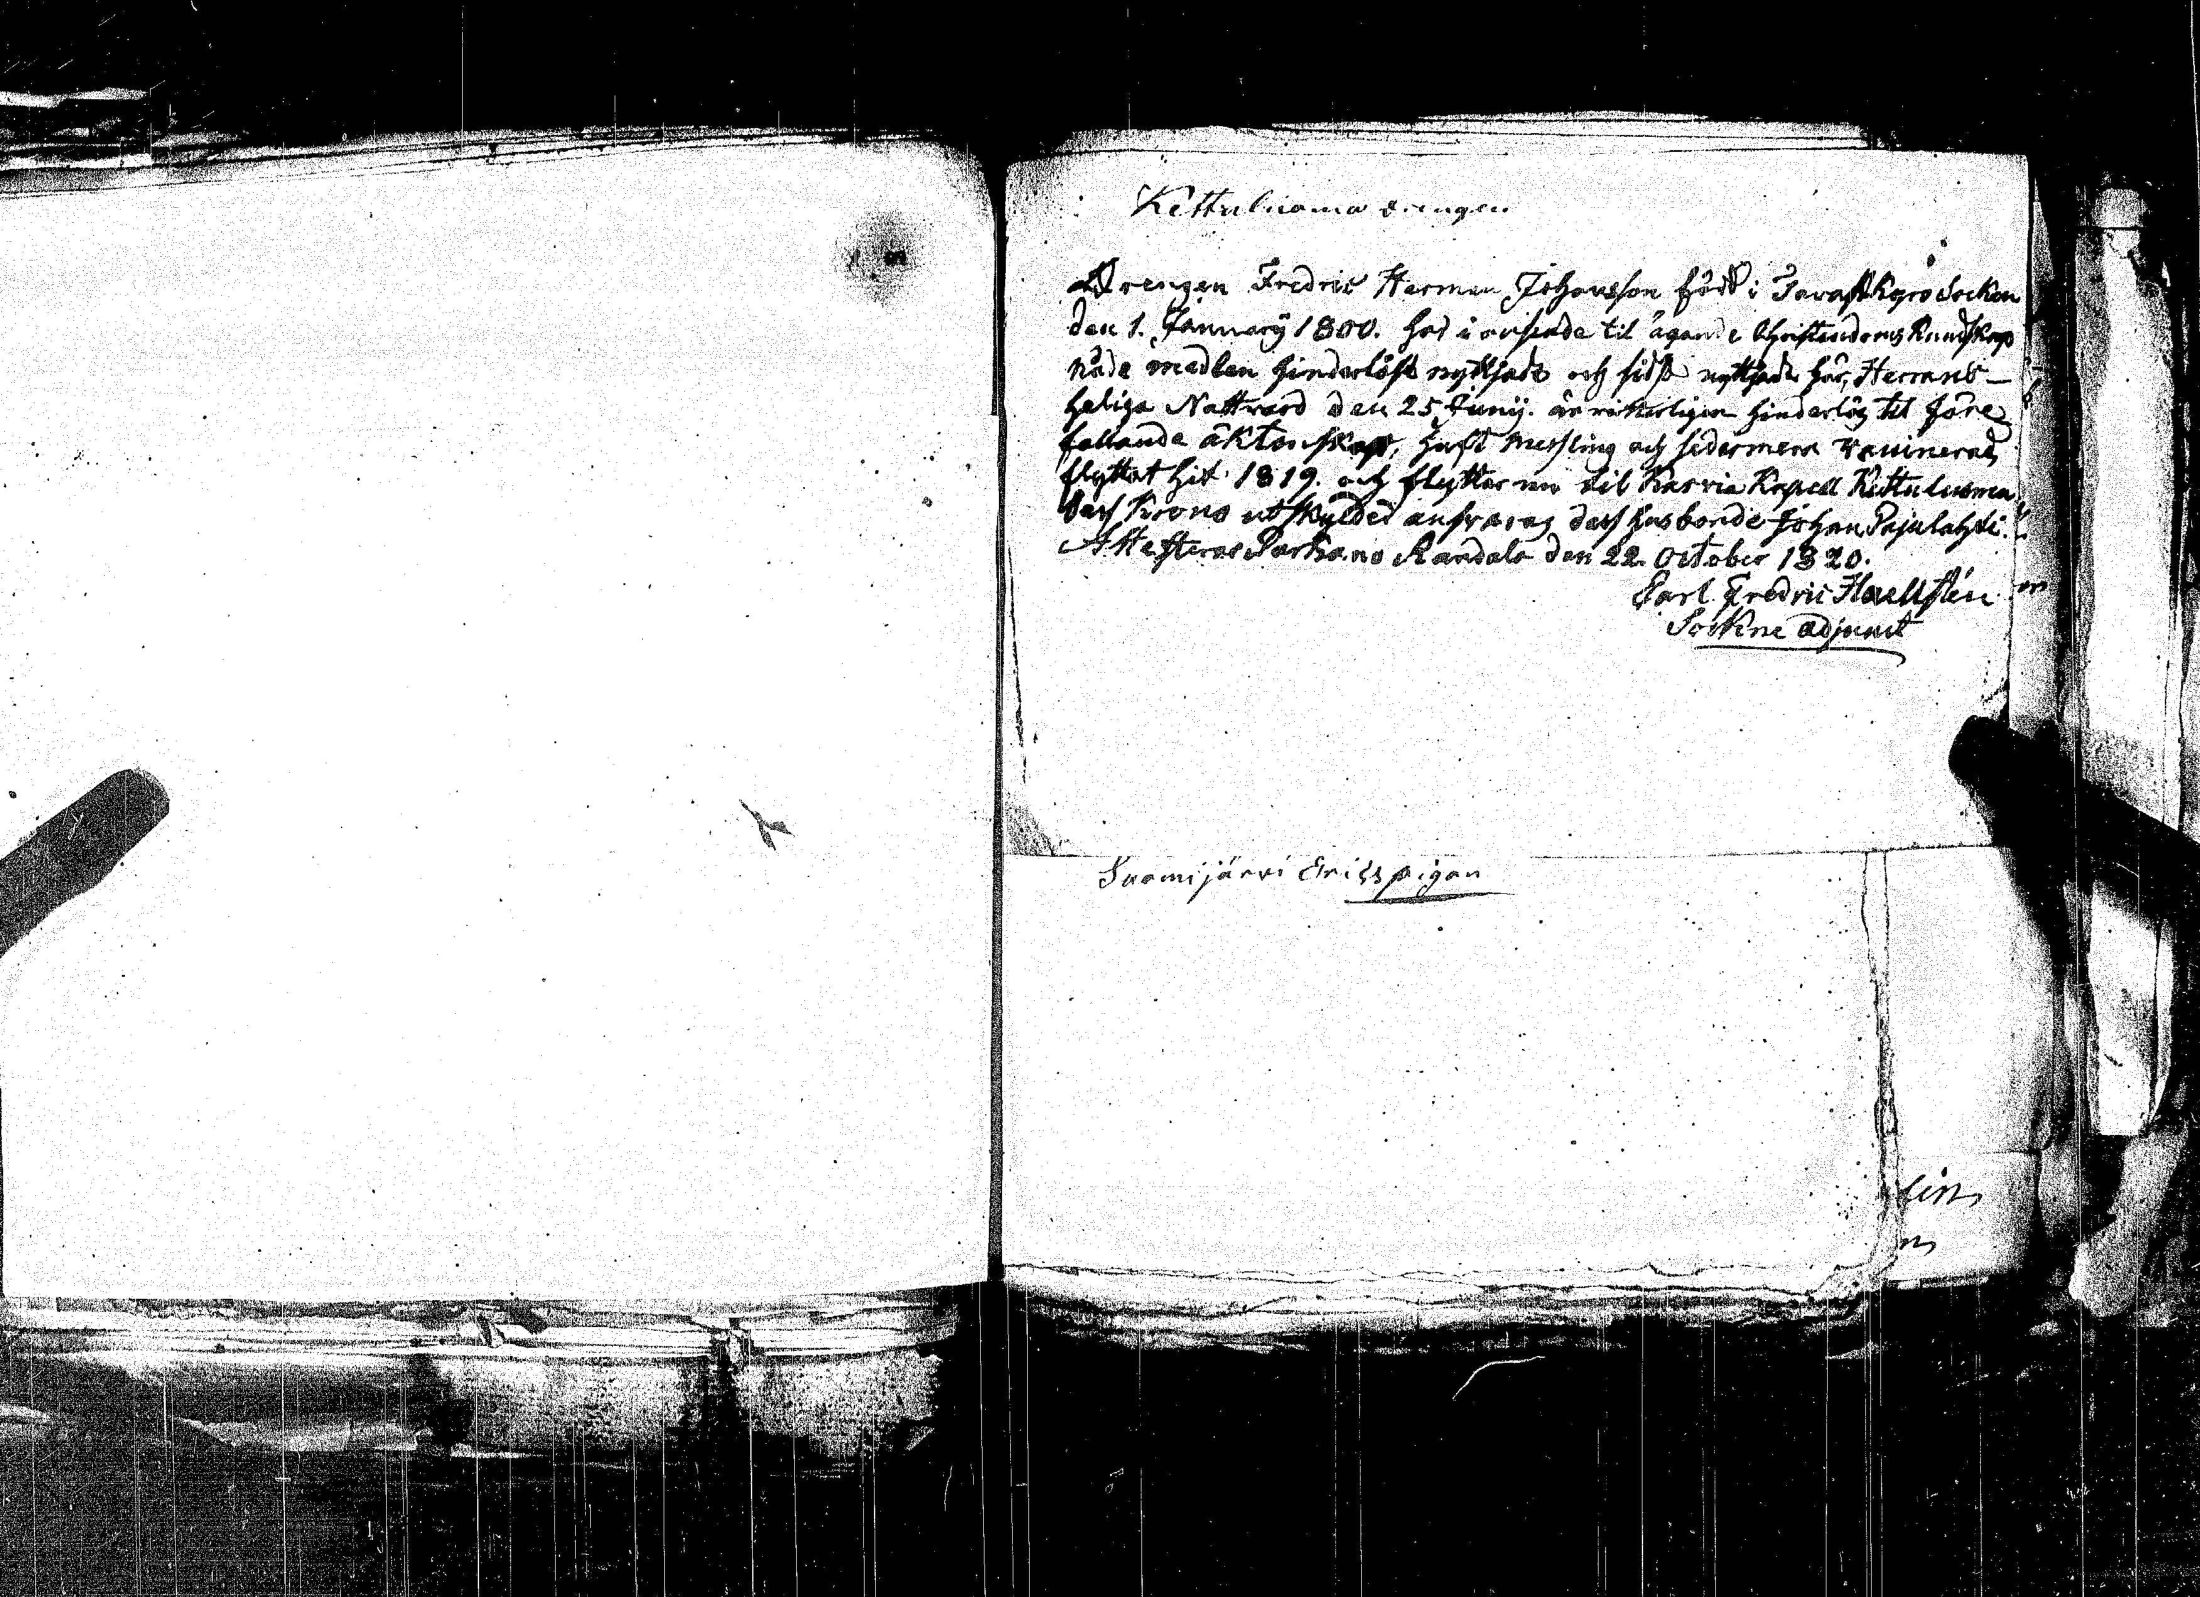 Kettuluoma drengen
Drengen Fredric Herman Johansson född i Tavastkyro Socken
den 1. January 1800. har i avseende til ägande Christendoms Kundskap
nåde medlen hinderlöst nyttjadt och sidst nyttjade här, Herrans
heliga Nattvard den 25 Junij. är vitterligen hinderlös til före
fallande äktenskap, haft messling och sedermera vaccinerad,
flyttat hit 1819. och flyttar nu til Karvia Kapell Kettuluoma,
dess Krono utskylder ansvarar dess husbonde Johan Pajulahti.
Attesteras Parkano Randala den 22. October 1820.
Carl Fredric Haellstén
Sockne adjunct
Suomijärvi Erics pigan